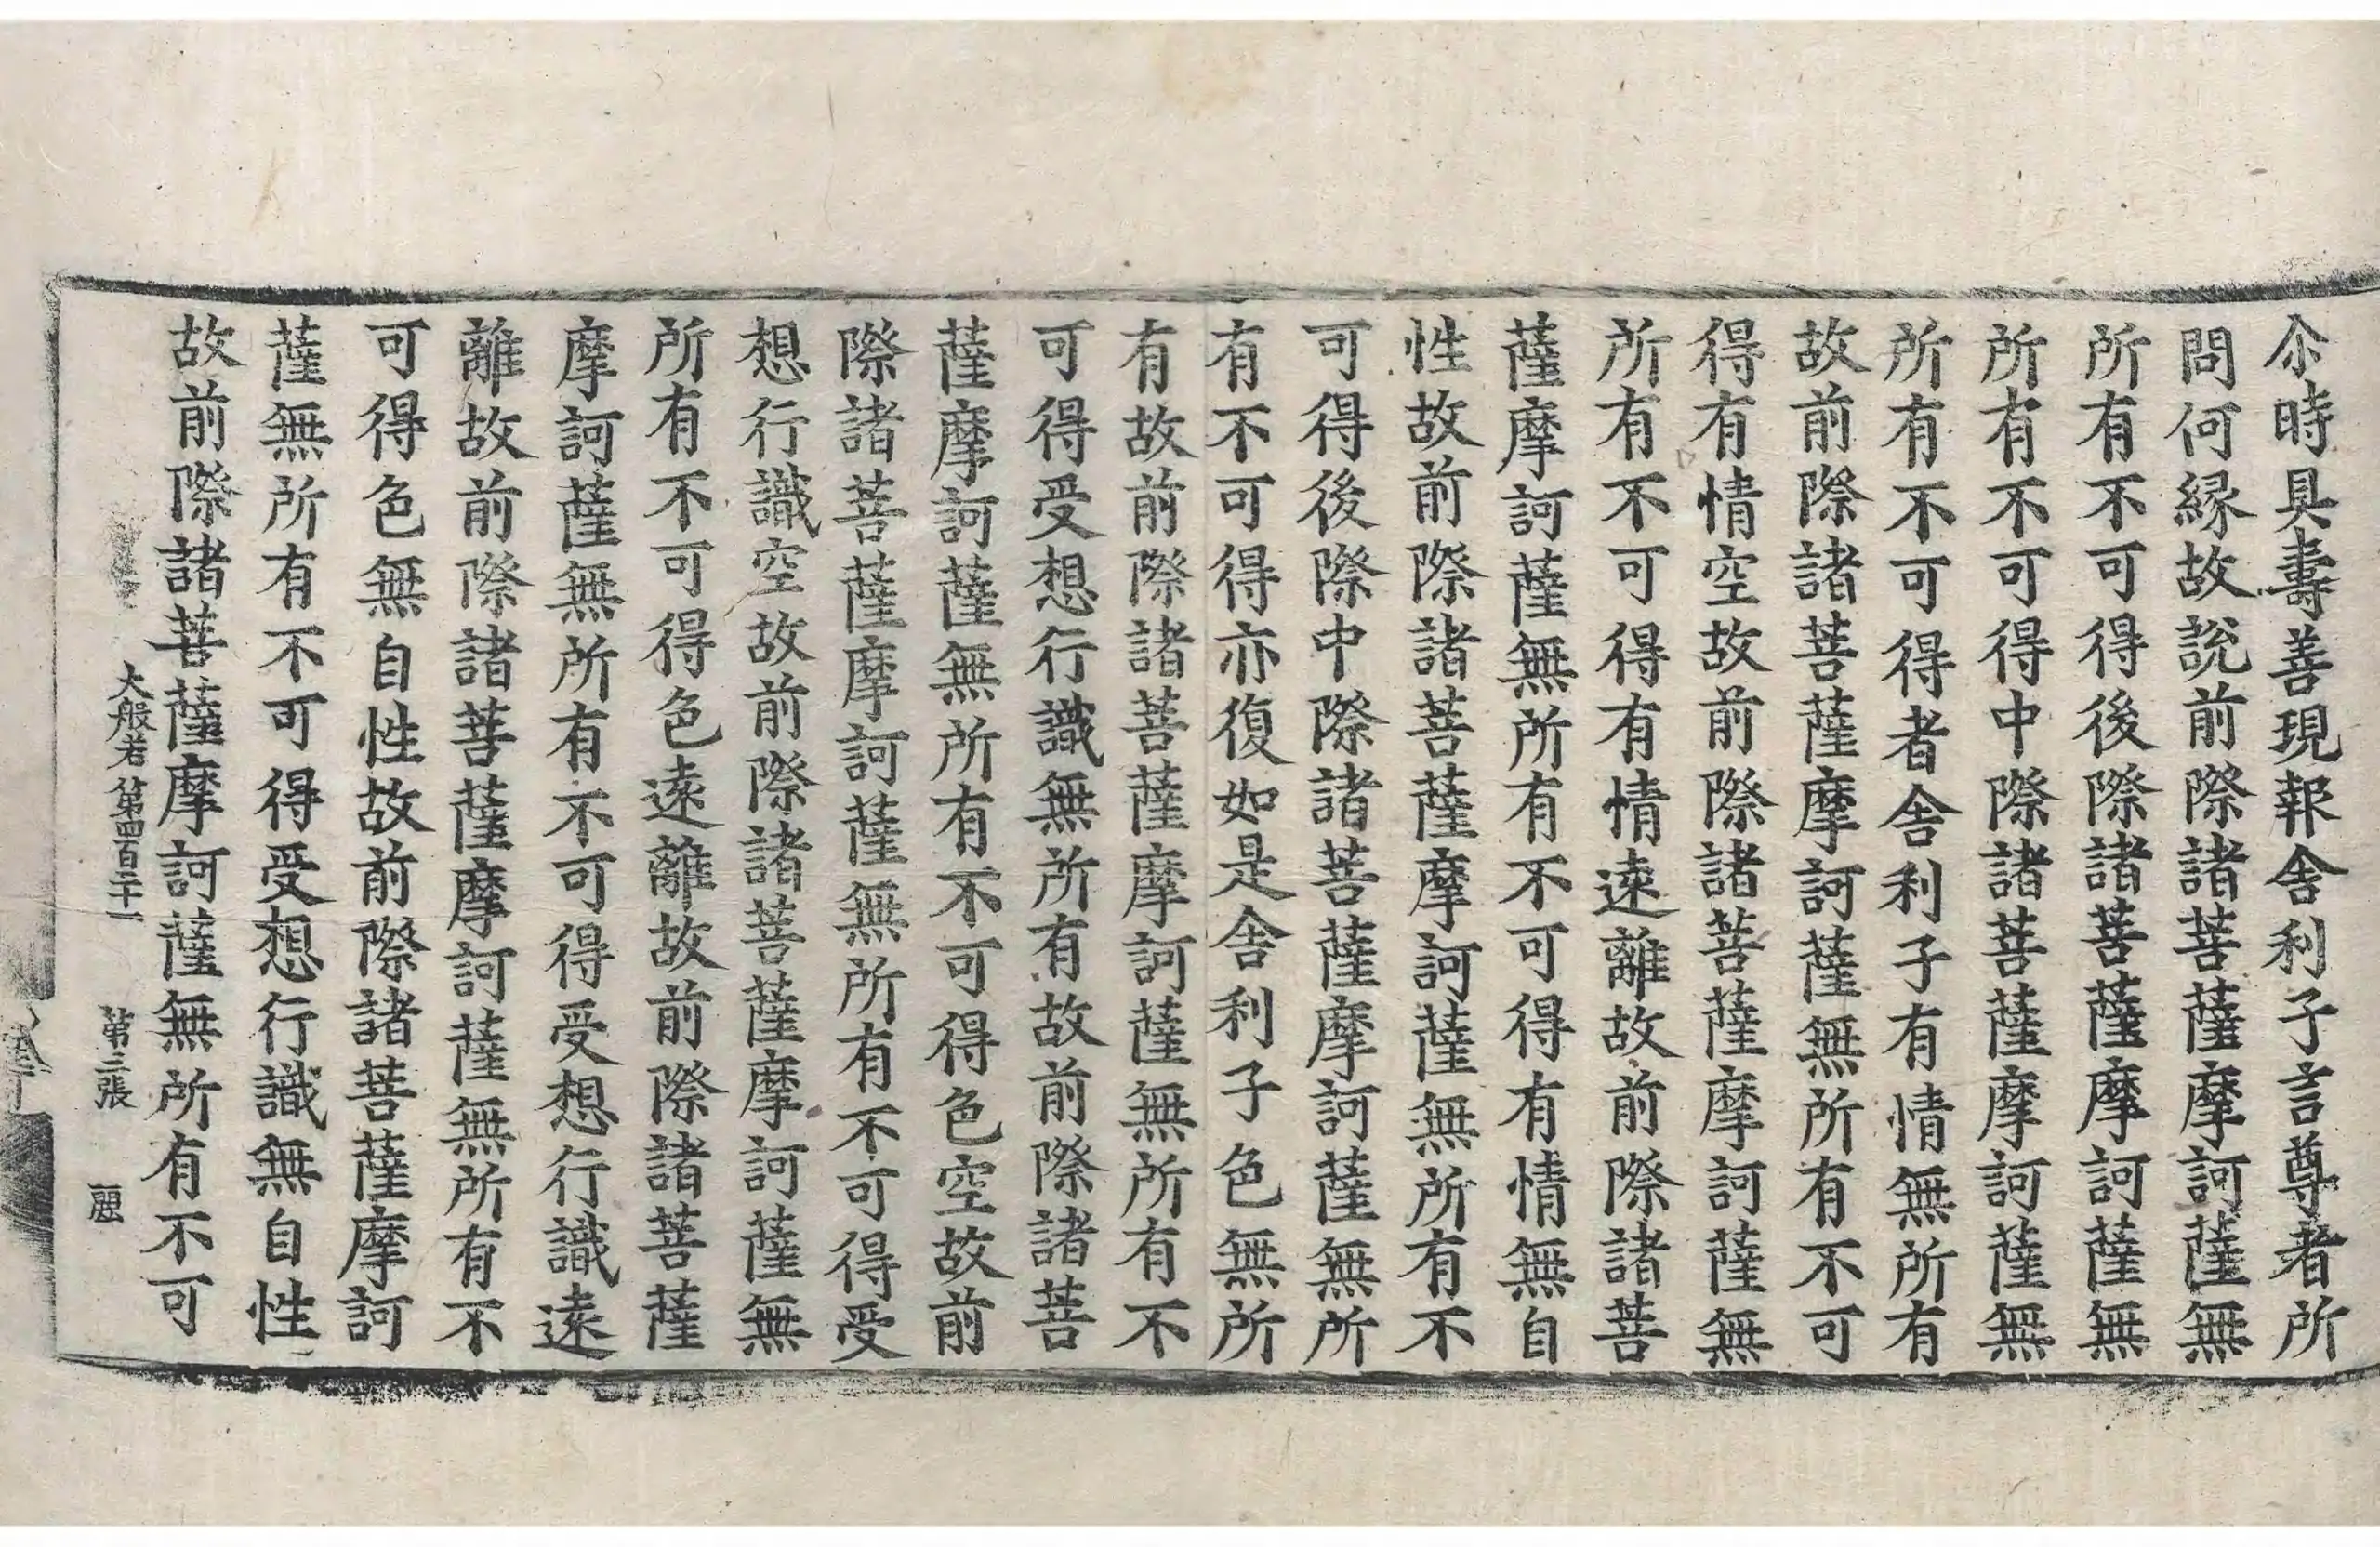 尒時具壽善現報舍利子言尊者所
問何縁故說前際諸菩薩摩訶薩無
所有不可得後際諸菩薩摩訶薩無
所有不可得中際諸菩薩摩訶薩無
所有不可得者舍利子有情無所有
故前際諸菩薩摩訶薩無所有不可
得有情空故前際諸菩薩摩訶薩無
所有不可得有情遠離故前際諸菩
薩摩訶薩無所有不可得有情無自
性故前際諸菩薩摩訶薩無所有不
可得後際中際諸菩薩摩訶薩無所
有不可得亦復如是舍利子色無所
有故前際諸菩薩摩訶薩無所有不
可得受想行識無所有故前際諸菩
薩摩訶薩無所有不可得色空故前
際諸菩薩摩訶薩無所有不可得受
想行識空故前際諸菩薩摩訶薩無
所有不可得色遠離故前際諸菩薩
摩訶薩無所有不可得受想行識遠
離故前際諸菩薩摩訶薩無所有不
可得色無自性故前際諸菩薩摩訶
薩無所有不可得受想行識無自性
故前際諸菩薩摩訶薩無所有不可
大般若第四百二十一 第三張